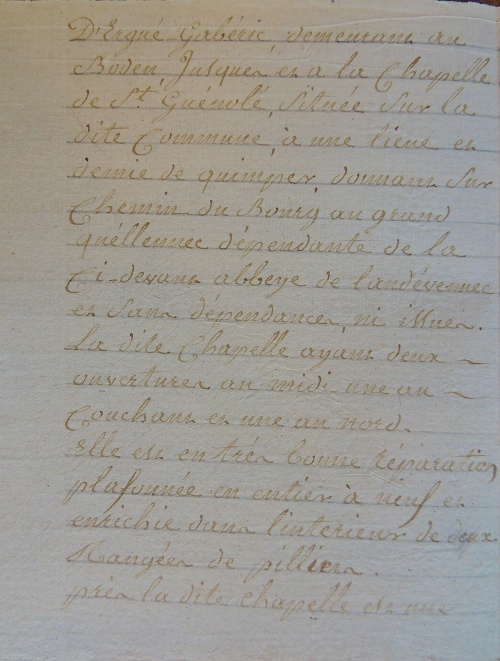 D'Ergué Gabéric, demeurant au
Boden, Jusques et a la Chapelle
de St. Guénolé, Située Sur la
dite Commune, à une lieue et
demie de quimper, donnant Sur
Chemin du Bourg au grand
quéllennec dépendante de la
Ci-devant abbeye de landévennec
et Sans dépendances, ni issues.
La dite Chapelle ayant deux
ouvertures au midi une au
Couchant et une au nord.
Elle est en très bonne réparation
plafonnée en entier à neuf et
enrichie dans l'interieur de deux
Rangées de pilliers.
près la dite chapelle est une